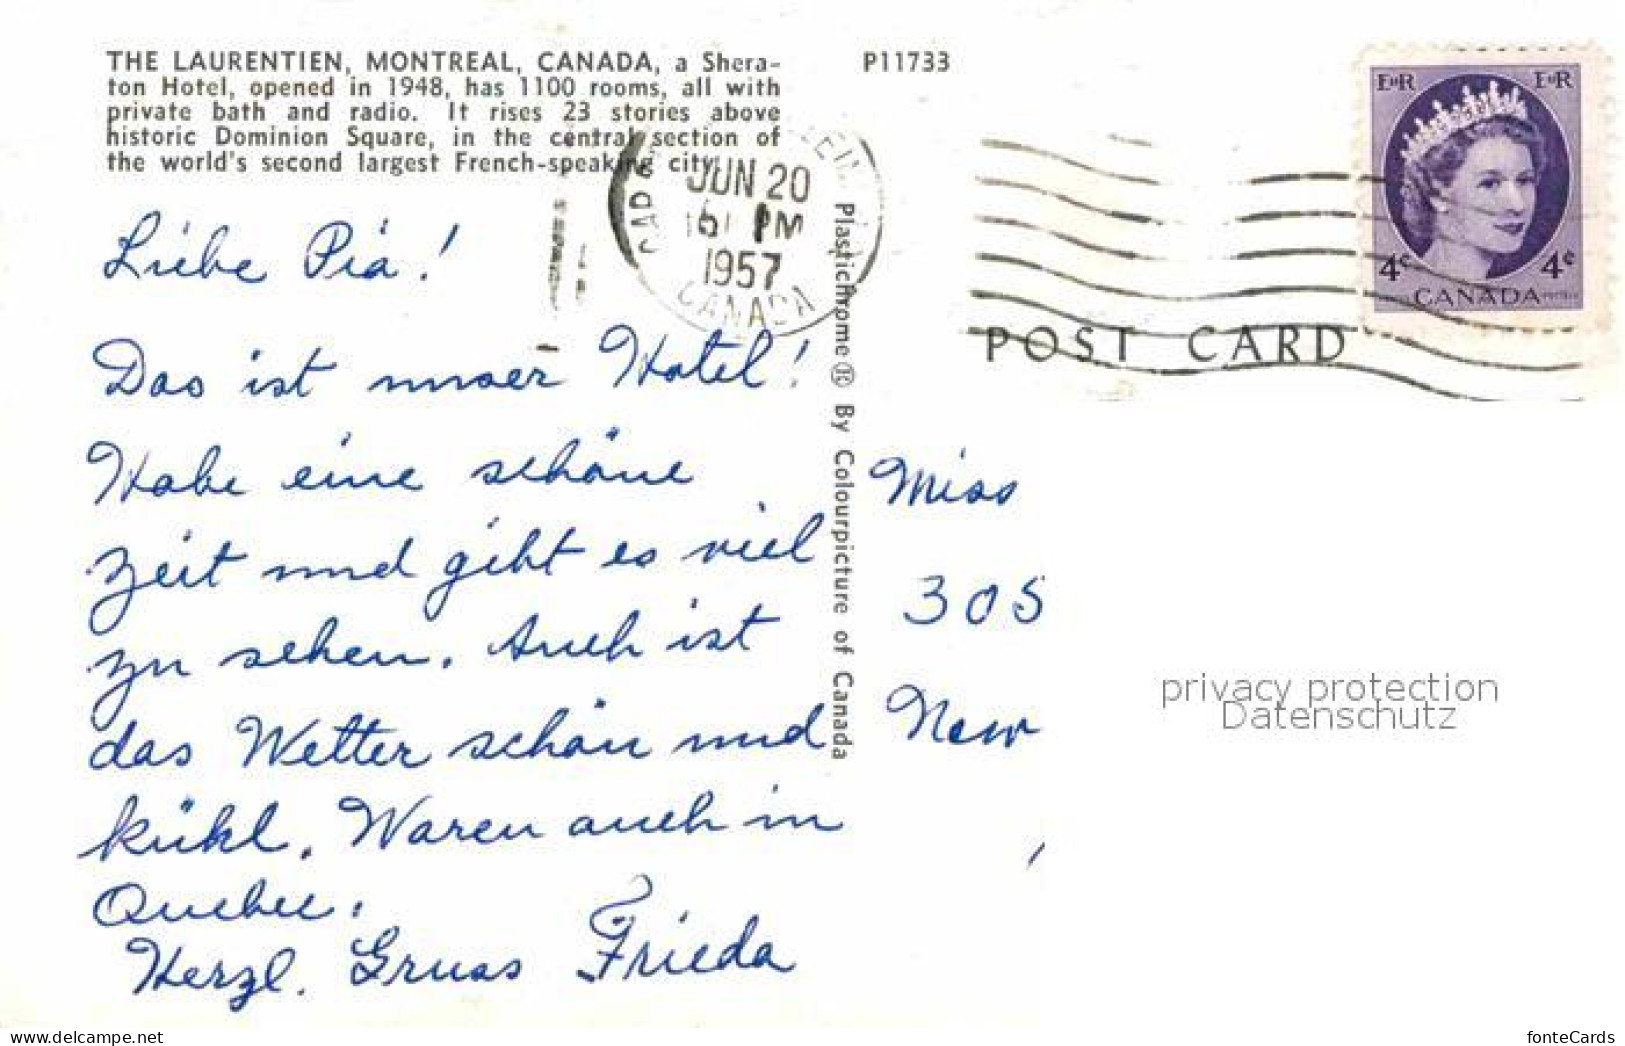 THE LAURENTIEN, MONTREAL, CANADA, a Shera-
ton Hotel, opened in 1948, has 1100 rooms, all with
private bath and radio. It rises 23 stories above
historic Dominion Square, in the central section of
the world's second largest French-speaking city.
P11733
JUN 20
PM
1957
CANADA
EIIR EIIR
4c 4c
CANADA
POST CARD
Plastichrome ® By Colourpicture of Canada
Liebe Pia!
Das ist unser Hotel!
Habe eine schöne
Zeit und gibt es viel
zu sehen. Auch ist
das Wetter schön und
kühl. Waren auch in
Quebec.
Herzl. Gruss Frieda
Miss
305
New
privacy protection
Datenschutz
www.delcampe.net
fonteCards